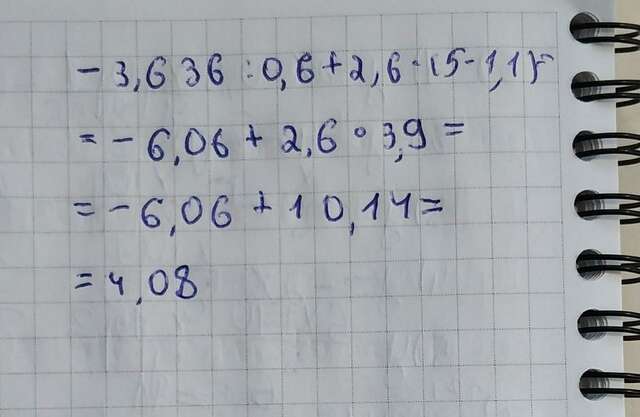 - 3,636 : 0,6 + 2,6 · (5 - 1,1) =
= - 6,06 + 2,6 · 3,9 =
= - 6,06 + 10,14 =
= 4,08